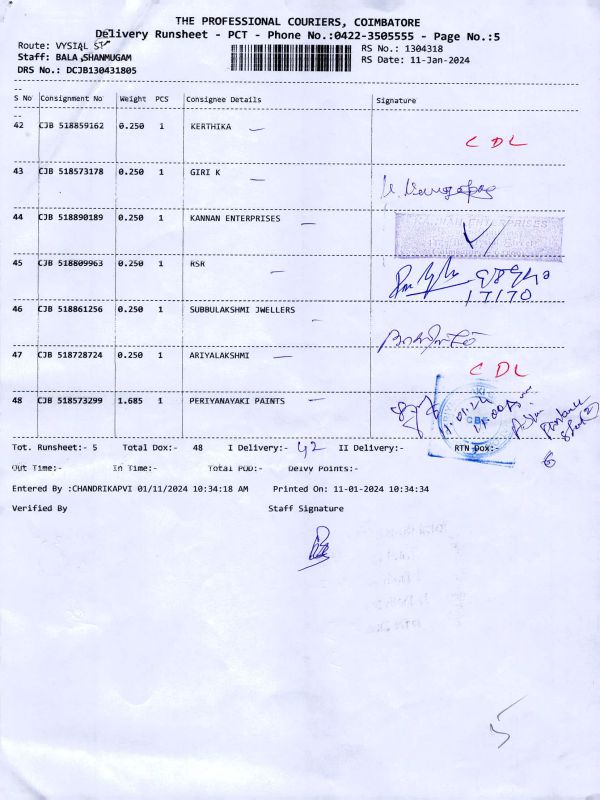 THE PROFESSIONAL COURIERS, COIMBATORE
Delivery Runsheet - PCT - Phone No.:0422-3505555 - Page No.:5
Route: VYSIAL ST
RS No.: 1304318
Staff: BALA SHANMUGAM
RS Date: 11-Jan-2024
DRS No.: DCJB130431805
S No Consignment No Weight PCS Consignee Details Signature
42 CJB 518859162 0.250 1 KERTHIKA CDL
43 CJB 518573178 0.250 1 GIRI K
44 CJB 518890189 0.250 1 KANNAN ENTERPRISES
45 CJB 518809963 0.250 1 RSR
46 CJB 518861256 0.250 1 SUBBULAKSHMI JWELLERS
47 CJB 518728724 0.250 1 ARIYALAKSHMI CDL
48 CJB 518573299 1.685 1 PERIYANAYAKI PAINTS
Tot. Runsheet:- 5 Total Dox:- 48 I Delivery:- 42 II Delivery:- RTN Dox:- 6
Out Time:- In Time:- Total POD:- Delvy Points:-
Entered By :CHANDRIKAPVI 01/11/2024 10:34:18 AM Printed On: 11-01-2024 10:34:34
Verified By Staff Signature
5